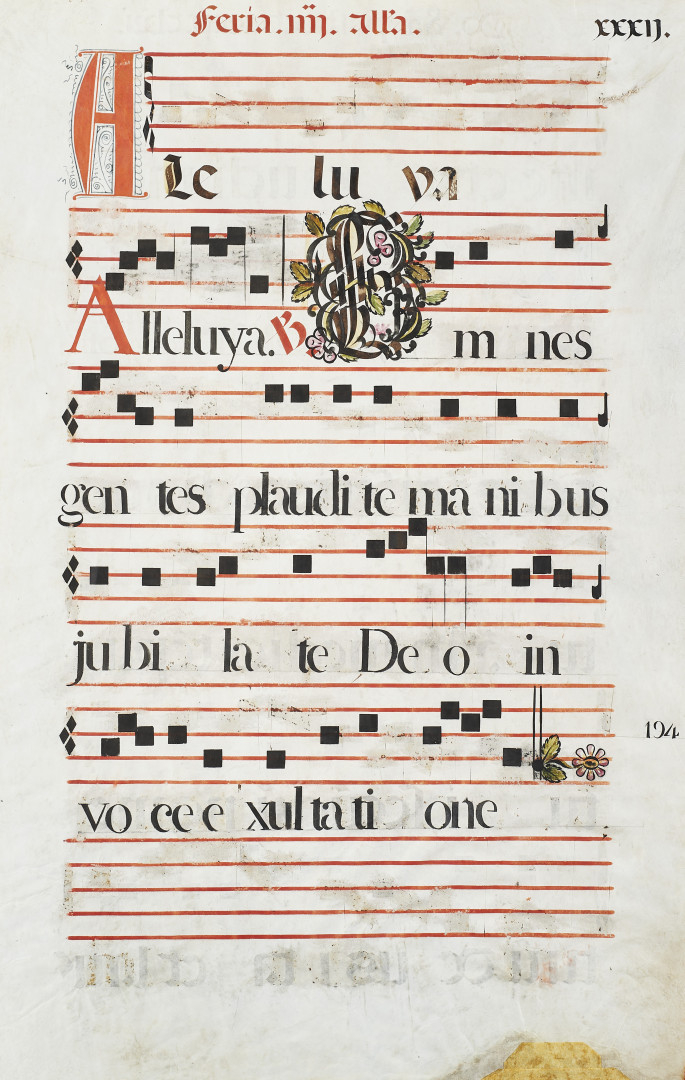 Feria. iiij. alla. xxxij.
Ale lu ya
Alleluya. ℟ O m nes
gen tes plaudi te ma ni bus
ju bi la te De o in
194
vo ce e xul ta ti one